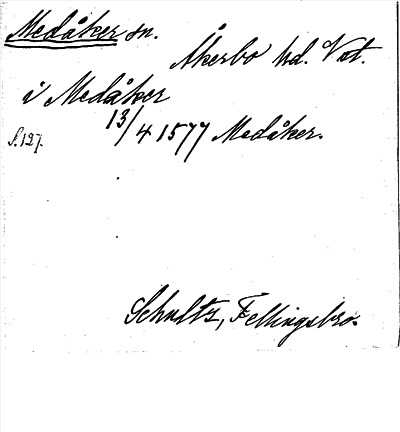 Medåker sn.
Åkerbo hd. Vst.
i Medåker
13/4 1577 Medåker.
S. 127.
Schultz, Fellingsbro.